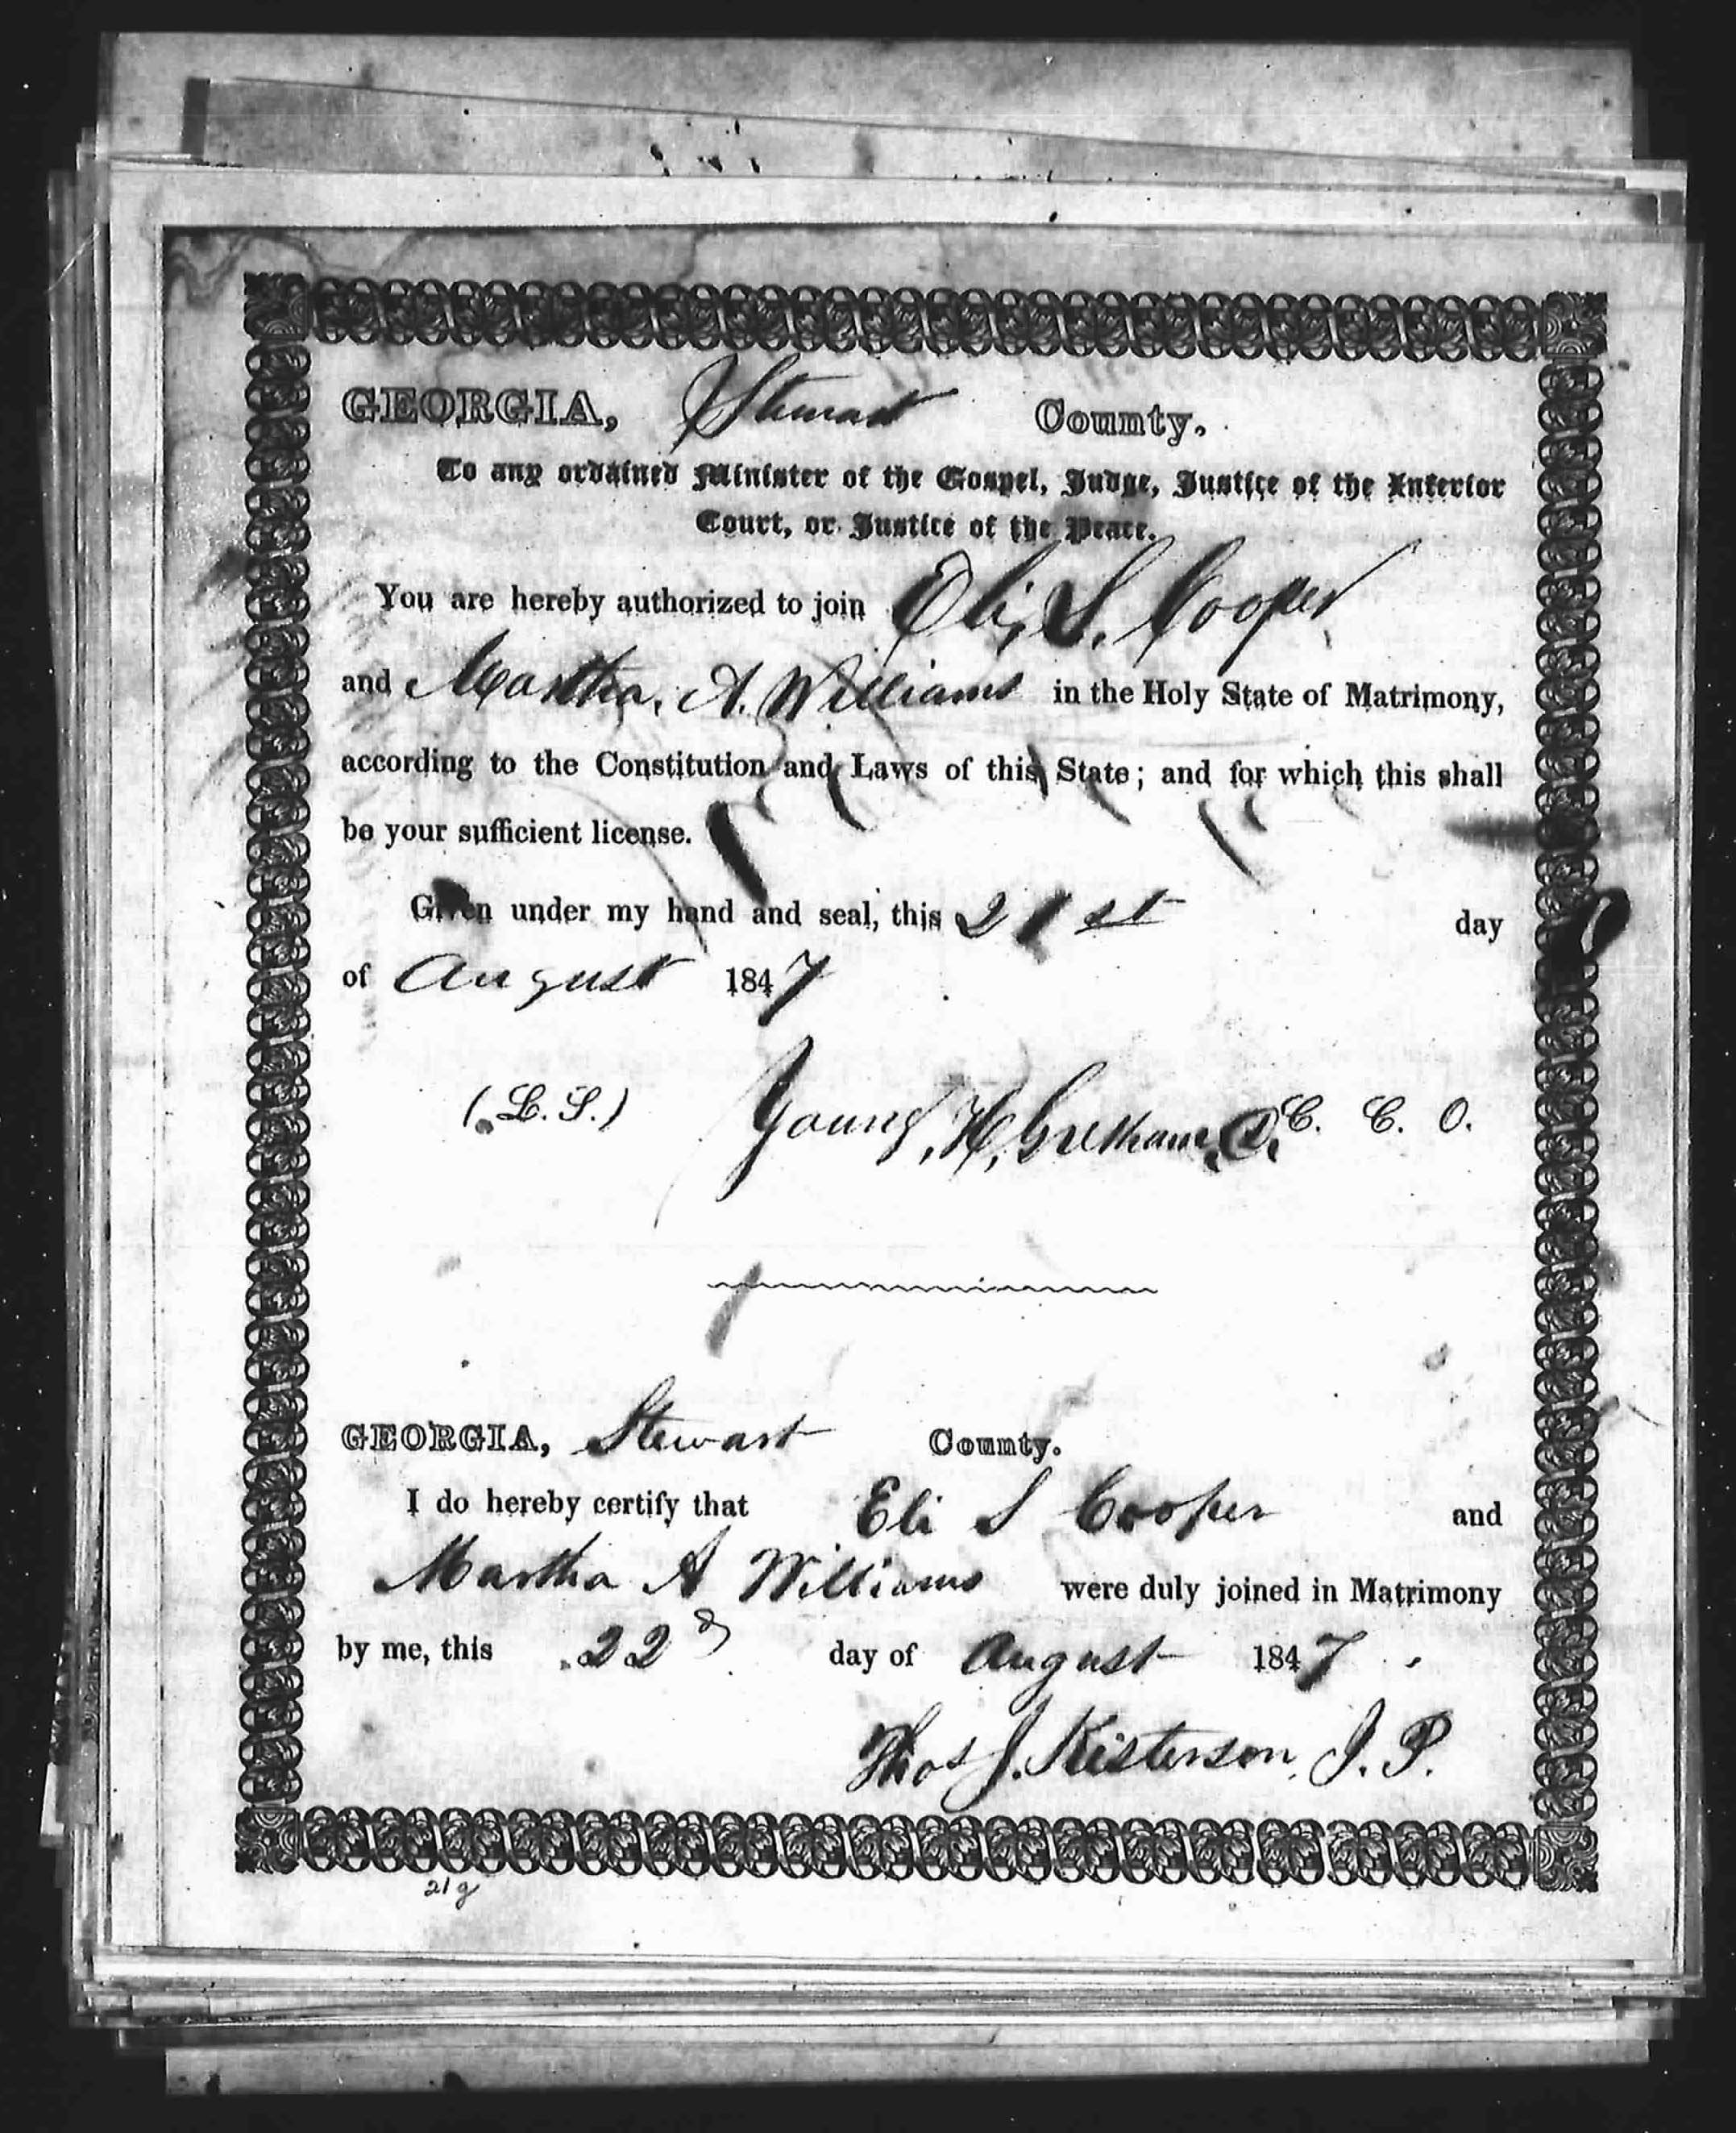 GEORGIA, Stewart County.
To any ordained Minister of the Gospel, Judge, Justice of the Inferior
Court, or Justice of the Peace.
You are hereby authorized to join Eli, S. Cooper
and Martha, A. Williams in the Holy State of Matrimony,
according to the Constitution and Laws of this State; and for which this shall
be your sufficient license.
Given under my hand and seal, this 21st day
of August 1847
(L. S.) Young, H, C. C. O.
GEORGIA, Stewart County.
I do hereby certify that Eli S Cooper and
Martha A Williams were duly joined in Matrimony
by me, this 22d day of August 1847.
Thos J. Kisterson, J. P.
21g